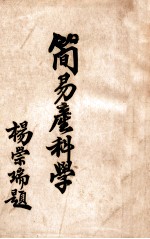 簡易產科學
楊崇瑞題